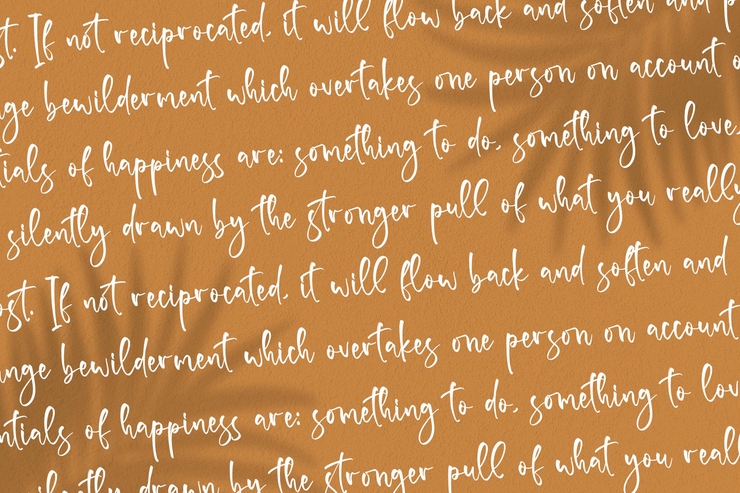 st. If not reciprocated, it will flow back and soften and p
nge bewilderment which overtakes one person on account o
tials of happiness are: something to do, something to love,
silently drawn by the stronger pull of what you really
ost. If not reciprocated, it will flow back and soften and
ange bewilderment which overtakes one person on account
ntials of happiness are: something to do, something to lov
silently drawn by the stronger pull of what you reall